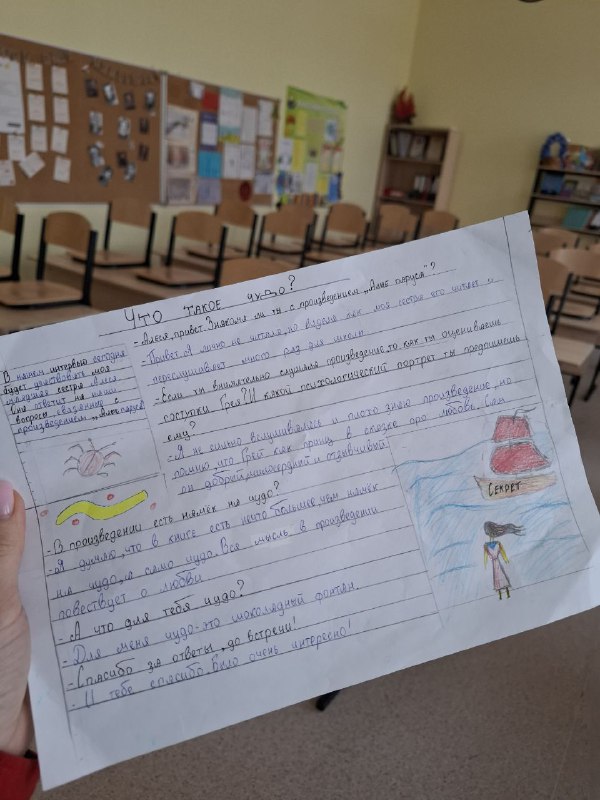 Что такое чудо?
В нашем интервью сегодня
будет участвовать моя
младшая сестра Алеся
Она ответит на наши
вопросы, связанные с
произведением „Алые паруса"
- Алеся, привет. Знакома ли ты с произведением „Алые паруса"?
- Привет. Я лично не читала, но видела как моя сестра его читает и
переслушивает много раз для школы
- Если ты внимательно слушала произведение, то как ты оцениваешь
поступки Грея? И какой психологический портрет ты предпишешь
ему?
- Я не сильно вслушивалась и плохо знаю произведение, но
помню, что Грей как принц в сказке про любовь. Сам
он добрый, милосердный и отзывчивый
- В произведении есть намёк на чудо?
- Я думаю, что в книге есть нечто большее, чем намёк
на чудо, а само чудо. Вся мысль в произведении
повествует о любви
- А что для тебя чудо?
- Для меня чудо-это шоколадный фонтан.
- Спасибо за ответы, до встречи!
- И тебе спасибо. Было очень интересно!
Секрет